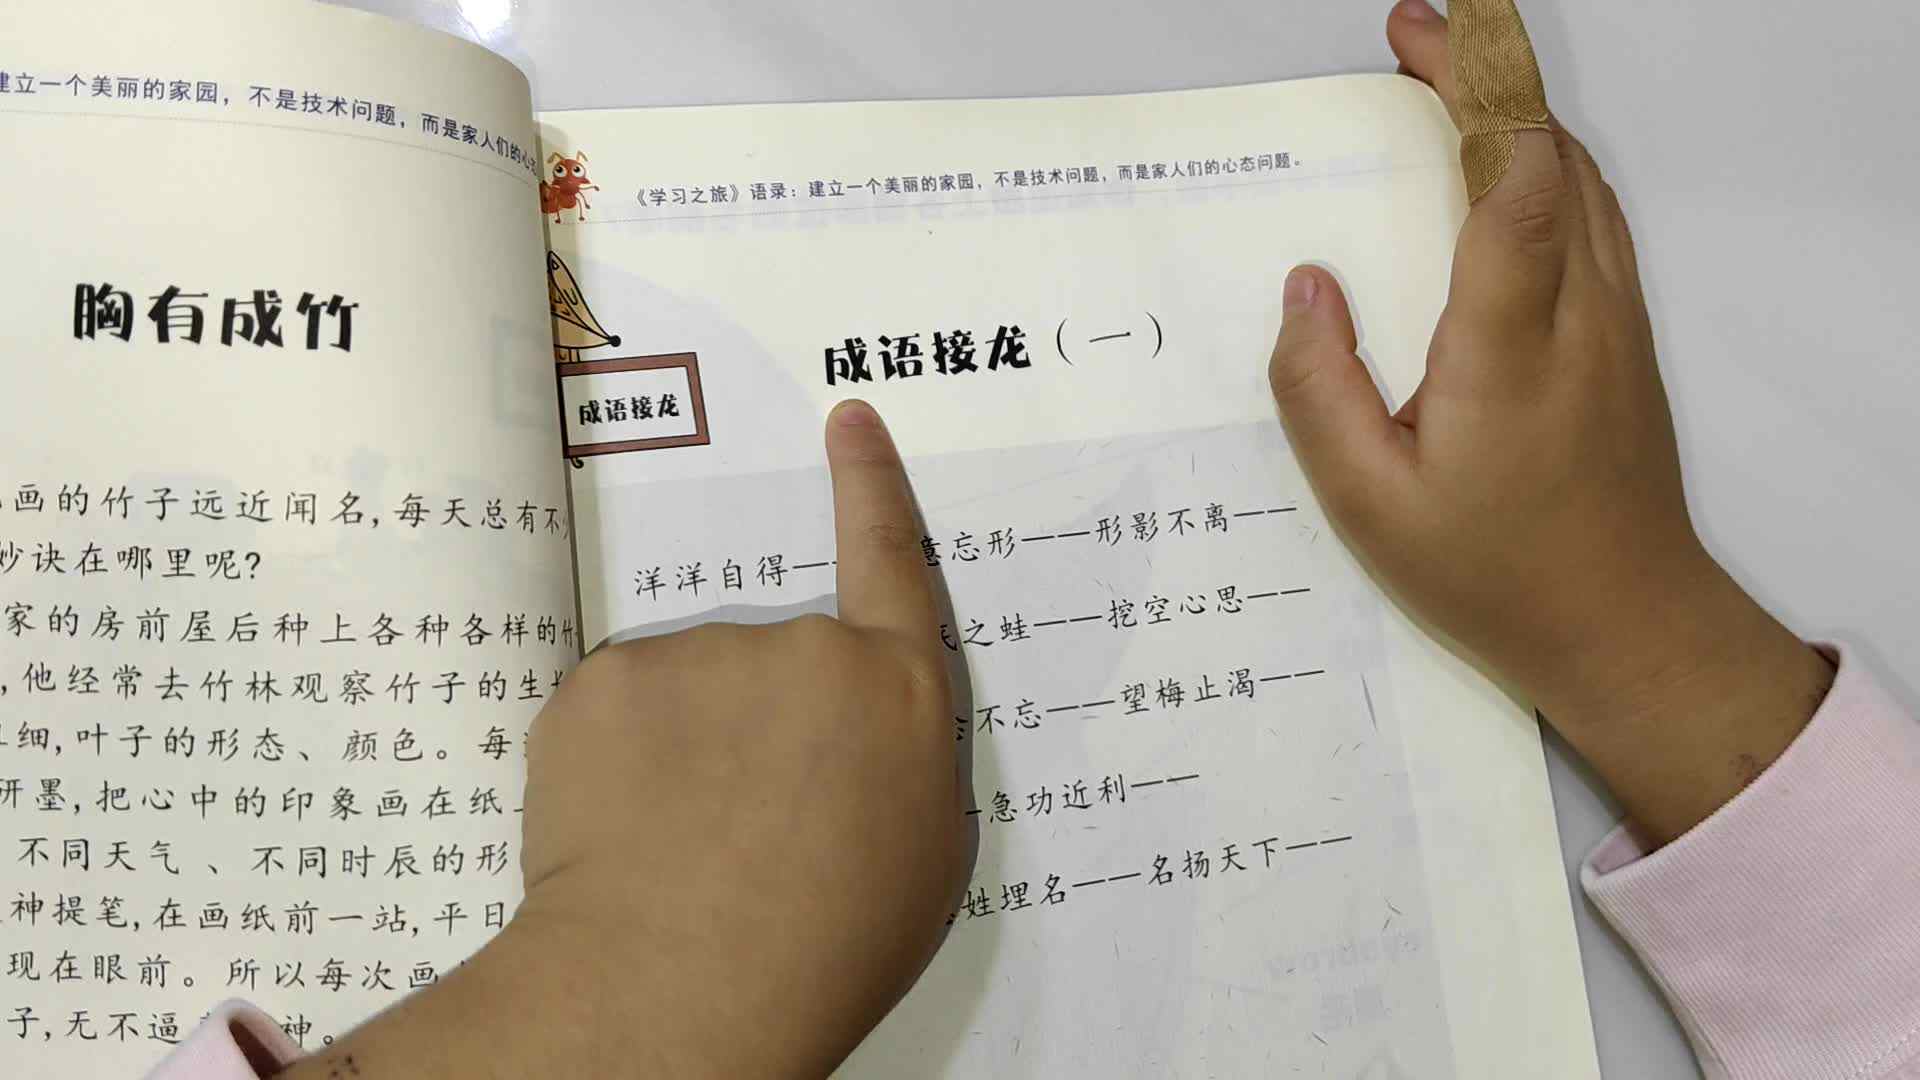 建立一个美丽的家园，不是技术问题，而是家人们的心
胸有成竹
画的竹子远近闻名，每天总有不
妙诀在哪里呢？
家的房前屋后种上各种各样的竹
，他经常去竹林观察竹子的生
细，叶子的形态、颜色。每
研墨，把心中的印象画在纸
不同天气、不同时辰的形
神提笔，在画纸前一站，平日
现在眼前。所以每次画
子，无不逼 神。
《学习之旅》语录：建立一个美丽的家园，不是技术问题，而是家人们的心态问题。
成语接龙（一）
成语接龙
洋洋自得—— 意忘形——形影不离——
之蛙——挖空心思——
不忘——望梅止渴——
急功近利——
姓埋名——名扬天下——